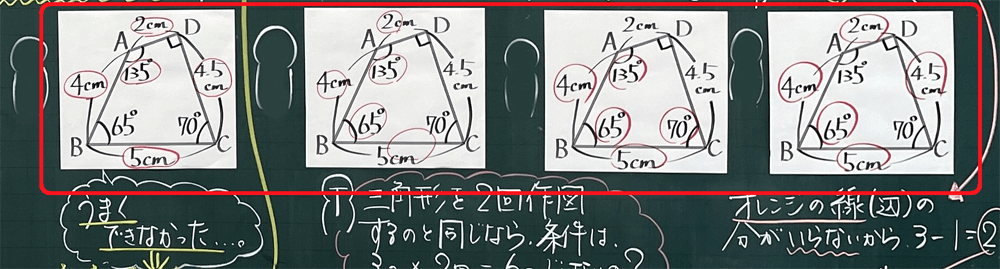 2cm
A
D
135°
4cm
4.5
cm
65°
70°
B
C
5cm
2cm
A
D
135°
4cm
4.5
cm
65°
70°
B
C
5cm
2cm
A
D
135°
4cm
4.5
cm
65°
70°
B
C
5cm
2cm
A
D
135°
4cm
4.5
cm
65°
70°
B
C
5cm
うまく
できなかった…。
T
三角形を2回作図
するのと同じなら、条件は、
オレンジの線(辺)の
分がいらないから 3-1=2